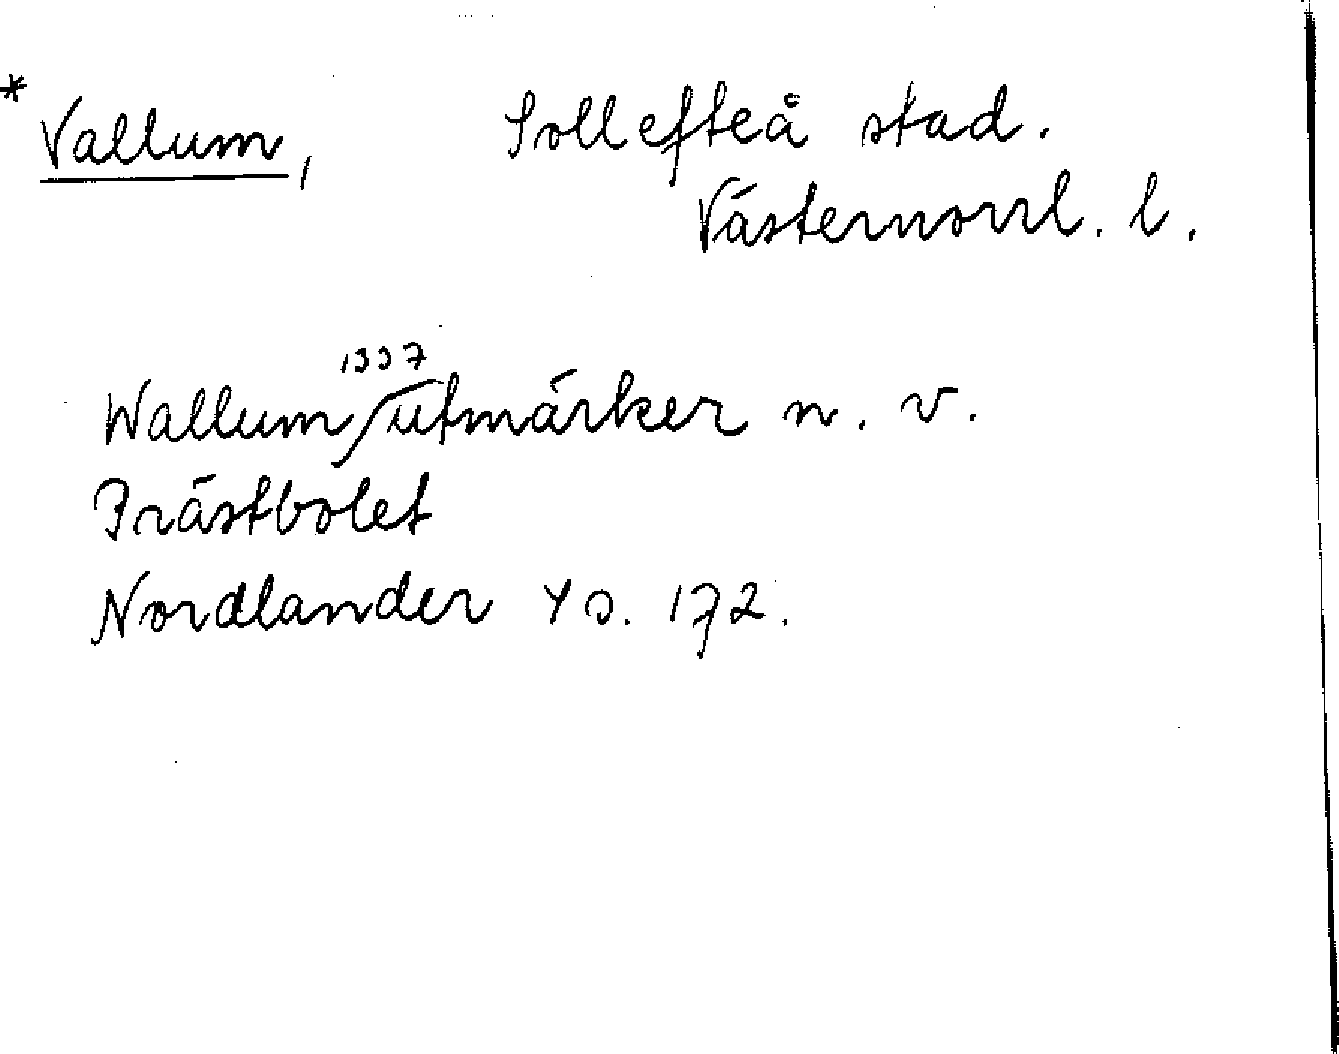 * Vallum, Sollefteå stad.
Västernorrl. l.
Wallum 1337 / utmärker n. v.
Prästbolet
Nordlander Y s. 172.